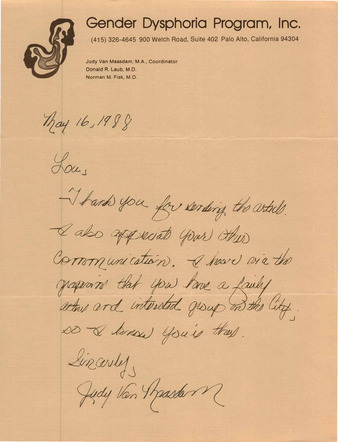 Gender Dysphoria Program, Inc.
(415) 326-4645 900 Welch Road, Suite 402 Palo Alto, California 94304
Judy Van Maasdam, M.A., Coordinator
Donald R. Laub, M.D.
Norman M. Fisk, M.D.
May 16, 1988
Lou,
Thank you for sending the article.
I also appreciate your other
communication. I hear via the
grapevine that you have a fairly
active and interested group in the City,
so I know you're
Sincerely,
Judy Van Maasdam